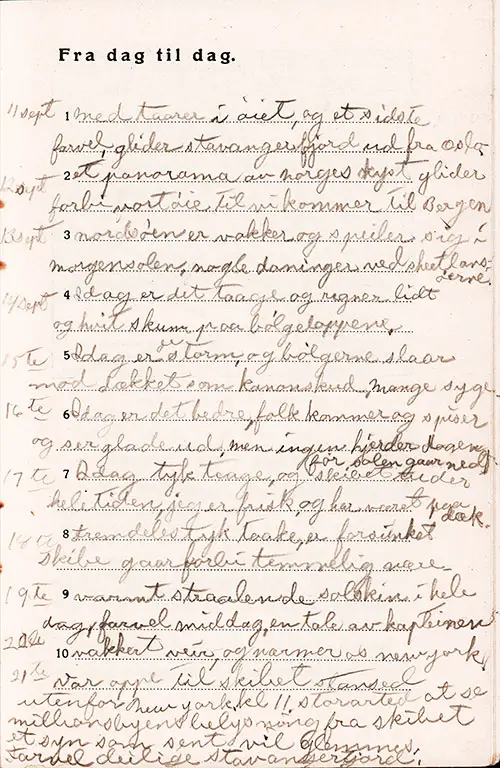 Fra dag til dag.
11 sept 1 med taarer i øiet, og et sidste
farvel, glider stavangerfjord ud fra Oslo
12 sept 2 et panorama av norges kyst glider
forbi vort øie til vi kommer til Bergen
13 sept 3 nordsøen er vakker og speiler sig i
morgensolen, nogle dæninger ved shetlans-
øerne.
14 sept 4 Idag er dit taage og regner lidt
og hvit skum paa bølgetoppene.
15 te 5 Idag er de storm, og bølgerne slaar
mod dækket som kanonskud, mange syge.
16 te 6 Idag er det bedre, folk kommer og spiser
og ser glade ud, men ingen hjerder dagen
før solen gaar ned
17 te 7 Idag tyk taage, og skibet tuder
hele tiden, jeg er frisk og har været paa
dæk.
18 te 8 fremdeles tyk taake, er forsinket
skibe gaar forbi temmelig nære
19 te 9 varmt straalende solskin i hele
dag, farvel middag, en tale av kapteinen
20de 10 vakkert veir, og nærmer os new york,
21 te var oppe til skibet stansed
utenfor new york, kl 11. storarted at se
millionsbyens belysning fra skibet
et syn som sent vil glemmes.
farvel deilige stavangerfjord.